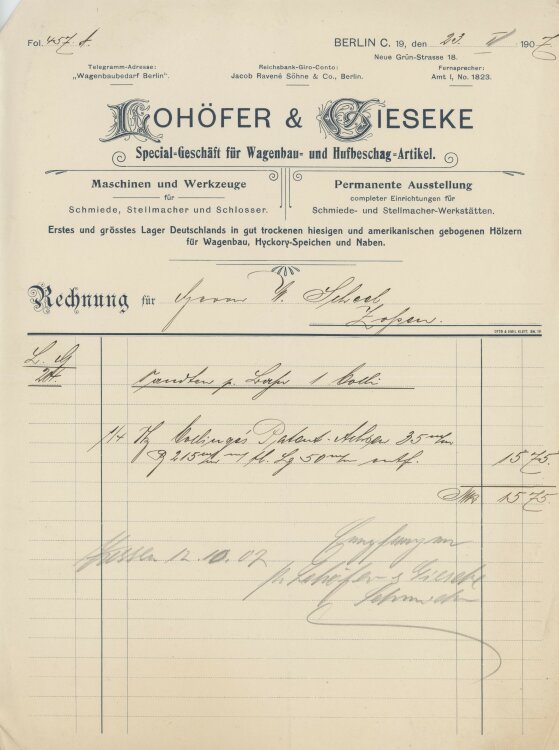 Fol. 457 f.
BERLIN C. 19, den 23. IV 1907
Neue Grün-Strasse 18.
Telegramm-Adresse:
„Wagenbaubedarf Berlin“.
Reichsbank-Giro-Conto:
Jacob Ravené Söhne & Co., Berlin.
Fernsprecher:
Amt I, No. 1823.
LOHÖFER & GIESEKE
Special-Geschäft für Wagenbau- und Hufbeschag-Artikel.
Maschinen und Werkzeuge
für
Schmiede, Stellmacher und Schlosser.
Permanente Ausstellung
completer Einrichtungen für
Schmiede- und Stellmacher-Werkstätten.
Erstes und grösstes Lager Deutschlands in gut trockenen hiesigen und amerikanischen gebogenen Hölzern
für Wagenbau, Hyckory-Speichen und Naben.
Rechnung für Herrn W.
Zossen.
L. G
Sandten p. Bahn 1 Colli
1/4 Collinge's Patent-Achsen 35 m/m
215 m/m 50 m/m 15 75
Mk 15 75
Zossen 12.10.07 Empfangen
p. Lohöfer & Gieseke